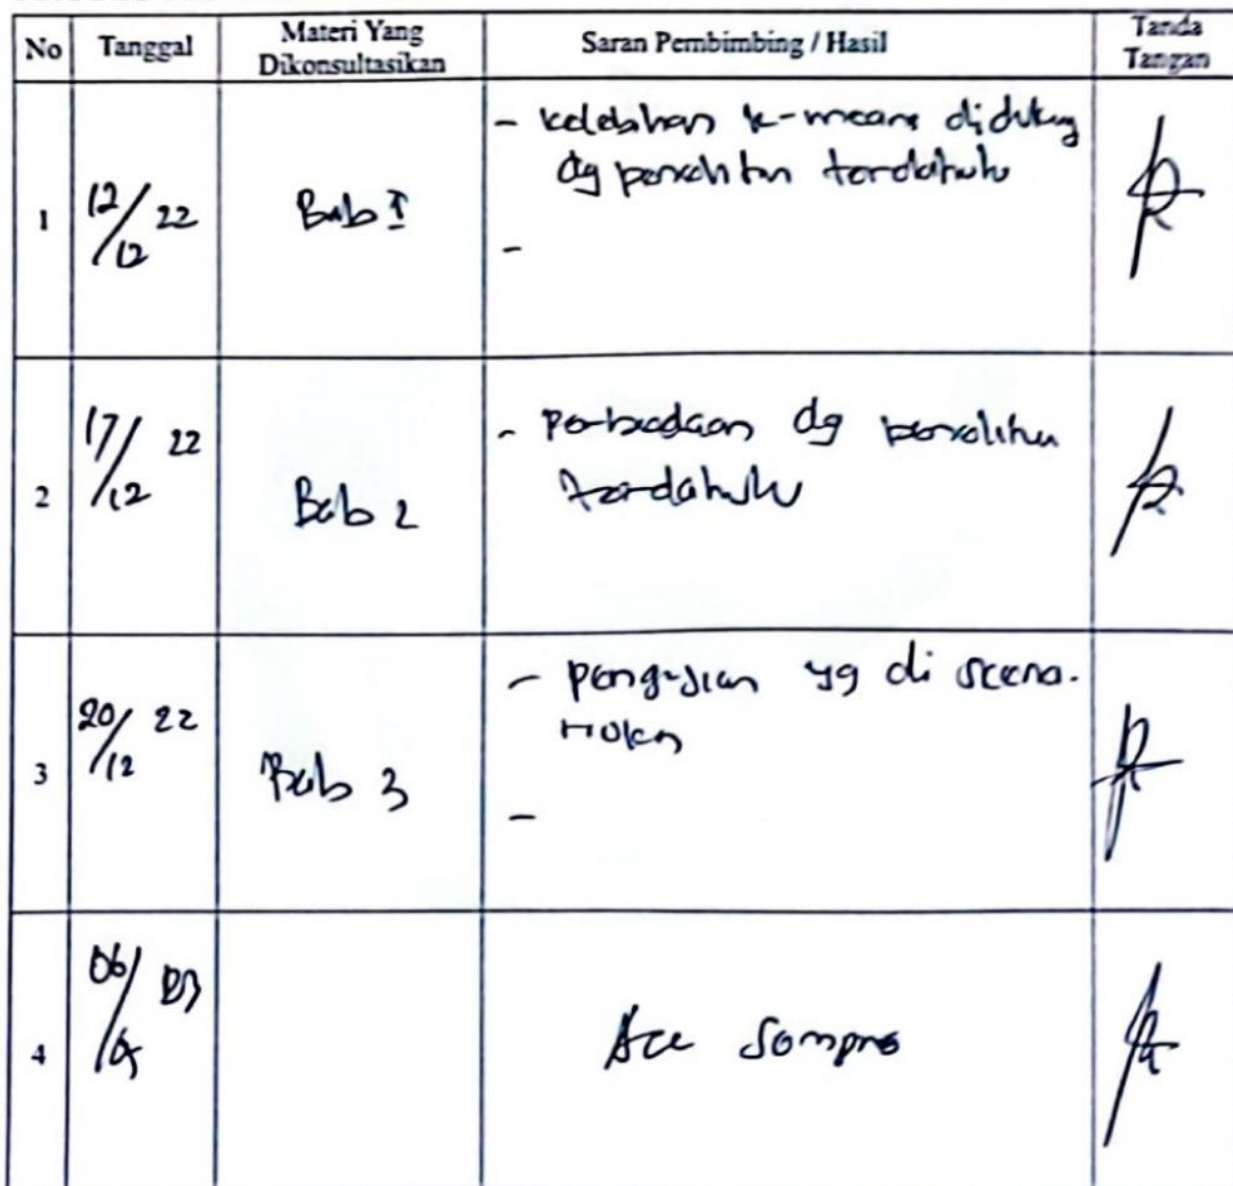 No Tanggal Materi Yang Dikonsultasikan Saran Pembimbing / Hasil Tanda Tangan
1 12/12 22 Bab I - kelebihan k-means didukung
dg penelitian terdahulu
-
2 17/12 22 Bab 2 - perbedaan dg penelitian
terdahulu
3 20/12 22 Bab 3 - pengujian yg di scena-
riokan
-
4 06/ Acc Sempro